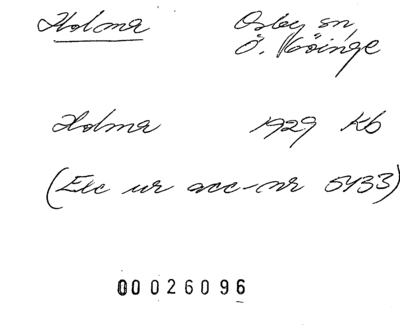 Holma Osby sn,
Ö. Göinge
Holma 1929 Kb
(Exc ur acc-nr 5433)
00026096